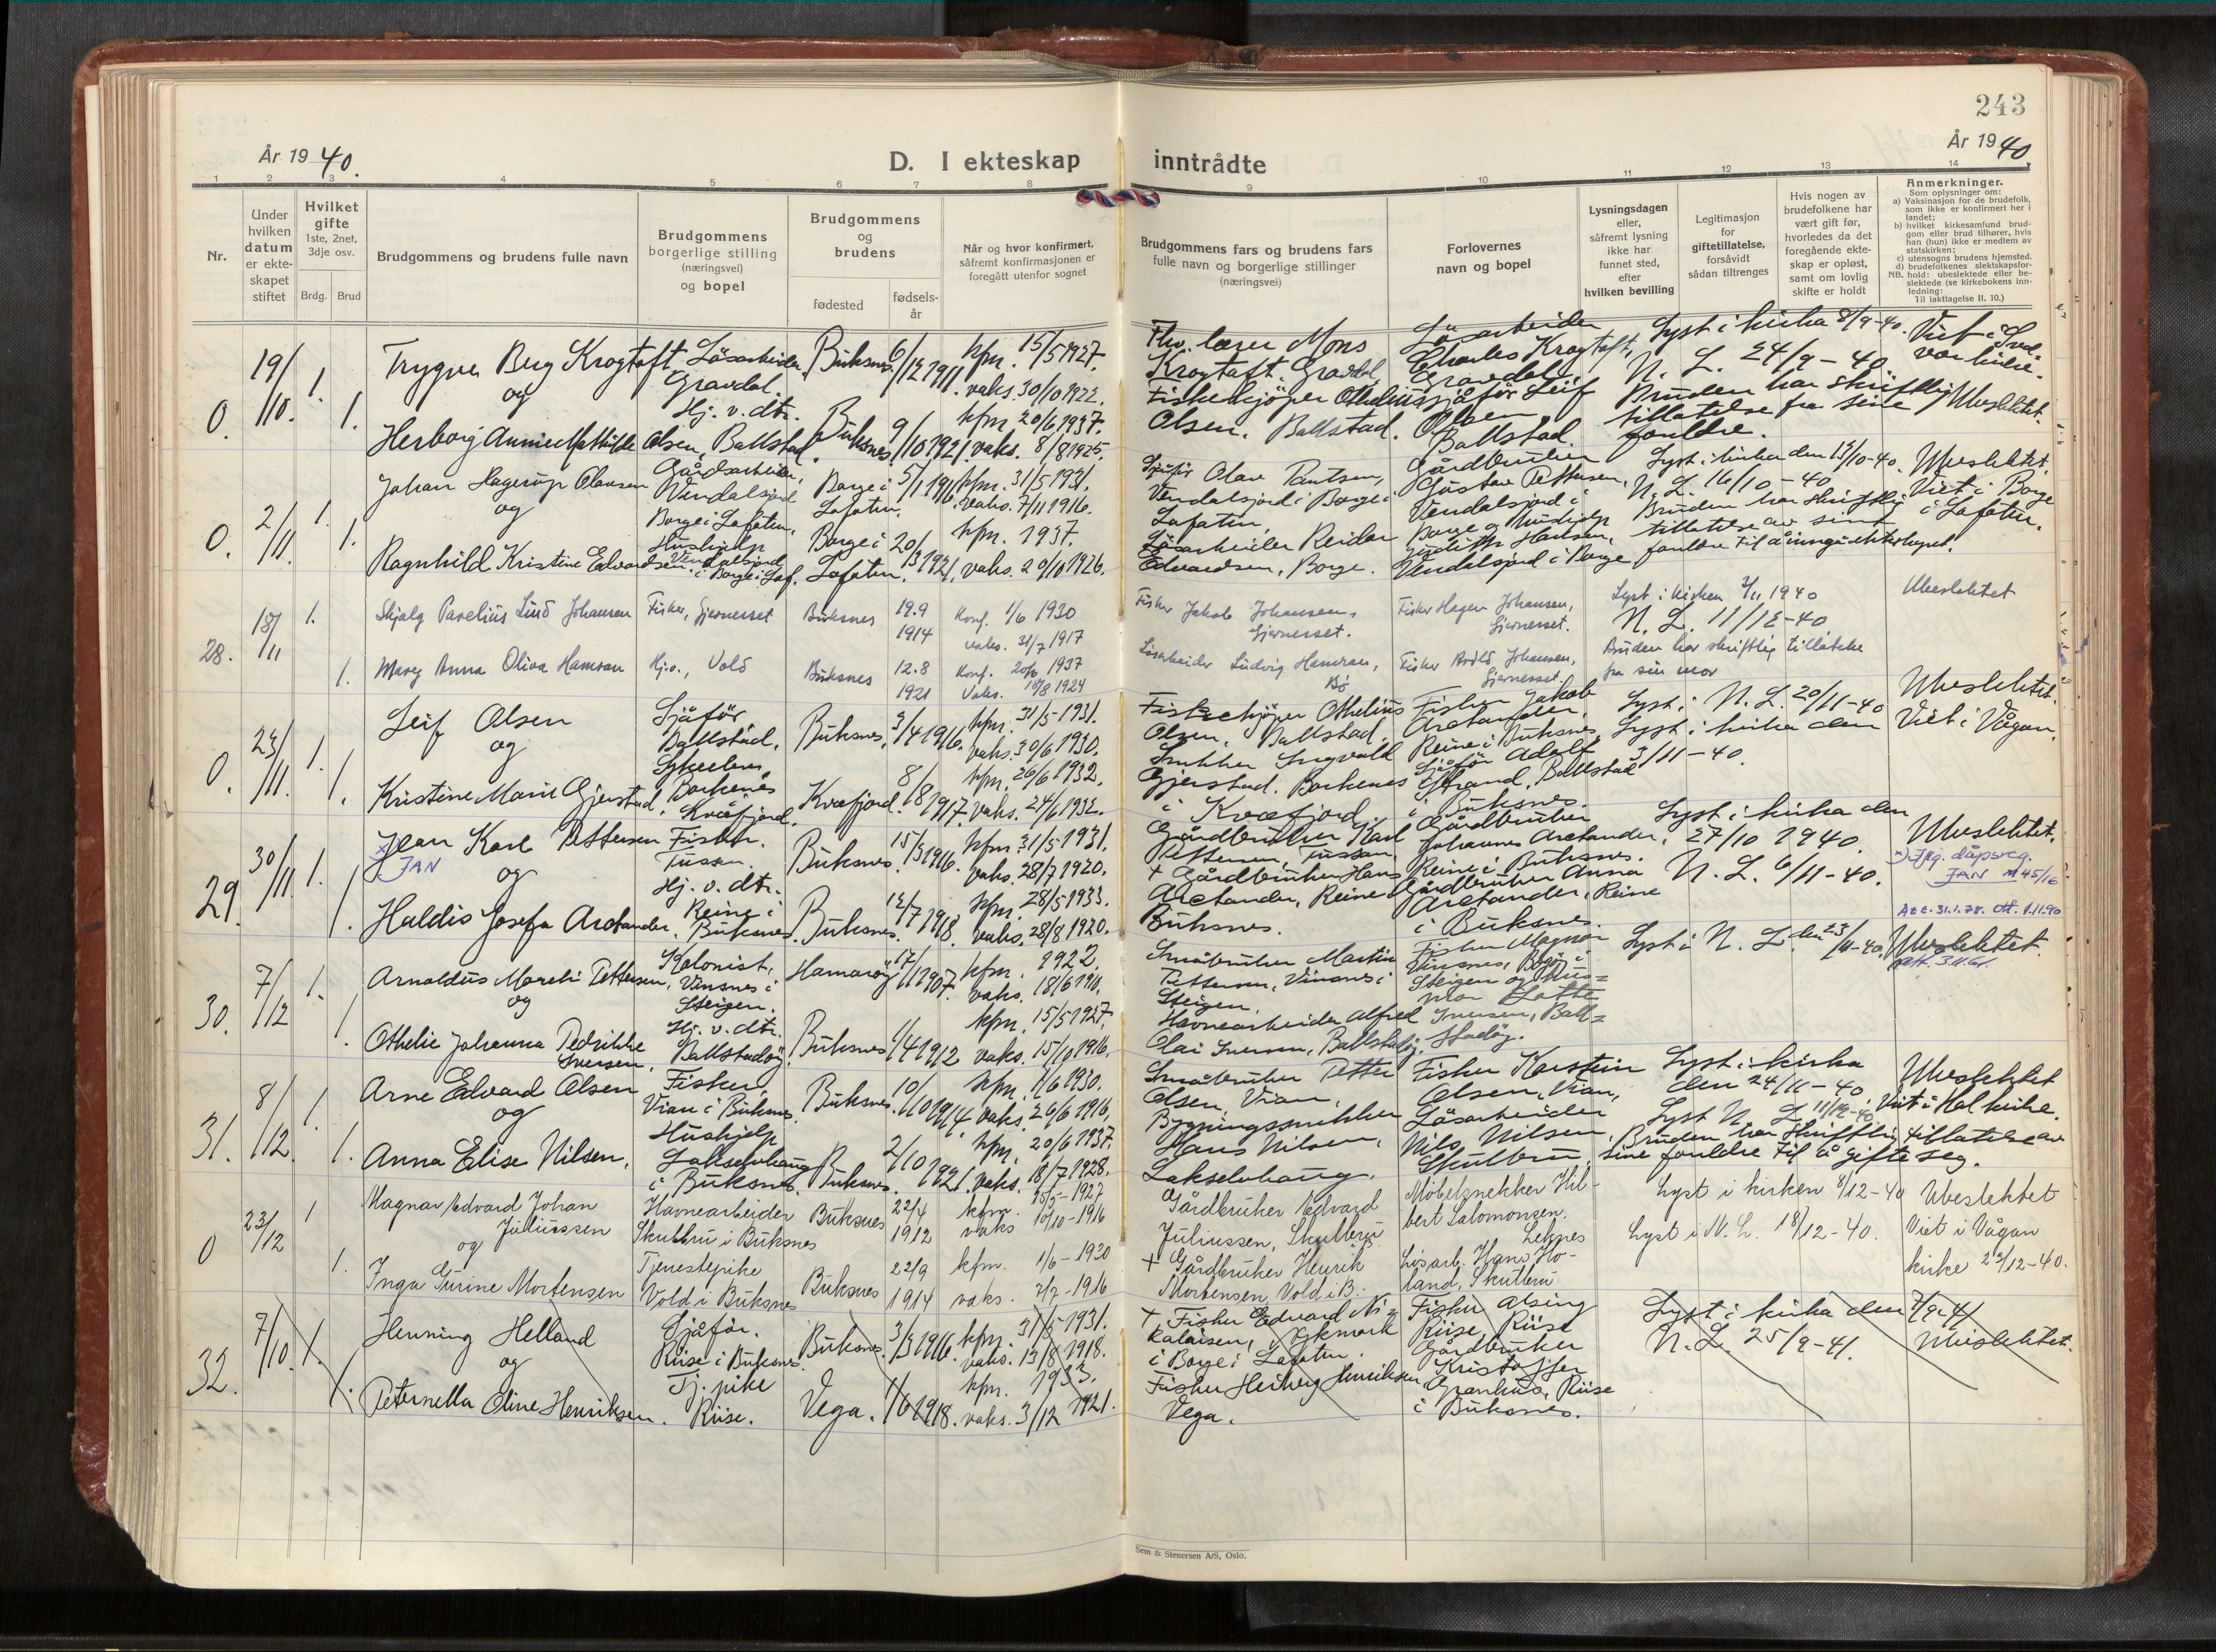 243
År 1940.
D. I ekteskap
inntrådte
År 1940
1 2 3 4 5 6 7 8 9 10 11 12 13 14
Nr.
Under
hvilken
datum
er ekte-
skapet
stiftet
Hvilket
gifte
1ste, 2net,
3dje osv.
Brdg. Brud
Brudgommens og brudens fulle navn
Brudgommens
borgerlige stilling
(næringsvei)
og bopel
Brudgommens
og
brudens
fødested
fødsels-
år
Når og hvor konfirmert,
såfremt konfirmasjonen er
foregått utenfor sognet
Brudgommens fars og brudens fars
fulle navn og borgerlige stillinger
(næringsvei)
Forlovernes
navn og bopel
Lysningsdagen
eller,
såfremt lysning
ikke har
funnet sted,
efter
hvilken bevilling
Legitimasjon
for
giftetillatelse,
forsåvidt
sådan tiltrenges
Hvis nogen av
brudefolkene har
vært gift før,
hvorledes da det
foregående ekte-
skap er opløst,
samt om lovlig
skifte er holdt
Anmerkninger.
Som oplysninger om:
a) Vaksinasjon for de brudefolk,
som ikke er konfirmert her i
landet;
b) hvilket kirkesamfund brud-
gom eller brud tilhører, hvis
han (hun) ikke er medlem av
statskirken;
c) utensogns brudens hjemsted.
d) brudefolkenes slektskapsfor-
NB. hold: ubeslektede eller be-
slektede (se kirkebokens inn-
ledning:
Til iakttagelse II. 10.)
0. 19/10. 1. 1.
Trygve Berg Krogtoft
og
Herborg Annie Mathilde Olsen, Ballstad.
Løsarbeider
Gravdal
Hj. v. dtr.
Buksnes 6/12 1911. kfm. 15/5 1927.
vaks. 30/10 1922.
Buksnes 9/10 1921. kfm. 20/6 1937.
vaks. 8/8 1925.
Fhv. lærer Mons
Krogtoft, Gravdal
Fiskekjøper Othelius
Olsen, Ballstad.
Løsarbeider
Charles Krogtoft,
Gravdal
Sjåfør Leif
Olsen
Ballstad.
Lyst i kirka 8/9-40.
N. L. 24/9-40
Bruden har skriftlig
tillatelse fra sine
foreldre.
Viet i Svol-
vær kirke.
Ubeslektet.
0. 2/11. 1. 1.
Johan Hagerup Olausen
og
Ragnhild Kristine Edvardsen
Gårdsarbeider,
Vendalsjord
Borge i Lofoten,
Hushjelp
Vendalsjord
i Borge i Lof.
Borge i
Lofoten. 5/1 1916. kfm. 31/5 1931.
vaks. 7/11 1916.
Borge i
Lofoten. 20/3 1921. kfm. 1937.
vaks. 20/10 1926.
Vendalsjord i Borge i
Lofoten,
Løsarbeider Reidar
Edvardsen, Borge.
Gårdbruker
Gustav Pettersen,
Vendalsjord i
Borge og hushjelp
Vendalsjord i Borge
Lyst i kirka den 13/10-40.
N. L. 16/10-40
Bruden har skriftlig
tillatelse av sine
foreldre til å inngå ekteskapet.
Ubeslektet.
Viet i Borge
i Lofoten.
28. 18/11 1. 1.
Skjalg Parelius Lind Johansen
Mary Anna Oliva Hamran
Fisker, Gjernesset
Hj.v., Vold
Buksnes 19.9 1914 Konf. 1/6 1930
Vaks. 31/7 1917
Buksnes 12.8 1921 Konf. 20/6 1937
Vaks. 18/8 1924
Fisker Jakob Johansen,
Gjernesset.
Løsarbeider Ludvig Hamran,
Bø
Fisker Hagen Johansen,
Gjernesset.
Fisker Arild Johansen,
Gjernesset.
Lyst i kirken 3/11 1940
N. L. 11/12-40
Bruden har skriftlig tillatelse
fra sin mor
Ubeslektet
0. 23/11. 1. 1.
Leif Olsen
og
Kristine Marie Gjerstad.
Sjåfør,
Ballstad,
Borkenes
Kvæfjord.
Buksnes. 3/4 1916. kfm. 31/5-1931.
vaks. 30/6 1930.
Kvæfjord. 8/8 1917. kfm. 26/6 1932.
vaks. 24/6 1932.
Fiskekjøper Othelius
Olsen, Ballstad.
Snekker Ingvald
Gjerstad. Borkenes
i Kvæfjord.
Fisker Jakob
Arctander,
Reine i Buksnes
Sjåfør Adolf
Strand, Ballstad
i Buksnes.
Lyst i N. L. 20/11-40
Lyst i kirka den
3/11-40.
Ubeslektet.
Viet i Vågan.
29. 30/11. 1. 1.
Jean Karl Pettersen
x) JAN
og
Haldis Josefa Arctander.
Fisker.
Tussan.
Hj. v. dtr.
Reine i
Buksnes.
Buksnes. 15/3 1916. kfm. 31/5 1931.
vaks. 28/7 1920.
Buksnes. 12/7 1918. kfm. 28/5 1933.
vaks. 28/8 1920.
Gårdbruker Karl
Pettersen, Tussan.
+ Gårdbruker Hans
Arctander, Reine i
Buksnes.
Gårdbruker
Johannes Arctander,
Reine i Buksnes.
Gårdbruker Anna
Arctander, Reine
i Buksnes.
Lyst i kirka den
27/10 1940.
N. L. 6/11-40.
Ubeslektet.
x) Jfr. dåpsreg.
JAN nr 45/16
Att. 31.1.78. Att. 1.11.90
30. 7/12 1. 1.
Arnoldus Pettersen,
og
Othelie Johanna Pedrikke
Iversen.
Kolonist,
Vinsnes i
Steigen.
Hj. v. dtr.
Ballstadøy.
Hamarøy 17/1 1907. kfm. 1922.
vaks. 18/6 1910.
Buksnes 1/4 1912 kfm. 15/5 1927.
vaks. 15/10 1916.
Småbruker Martin
Pettersen, Vinsnes i
Steigen.
Havnearbeider Alfred
Olai Iversen, Ballstadøy.
Fisker Magnor
Vinsnes, Bogøy i
Steigen og Hus-
mor Lotte
Iversen, Ball-
stadøy.
Lyst i N. L. den 23/11-40.
Ubeslektet.
Att. 3.11.61.
31. 8/12. 1. 1.
Arne Edvard Olsen
og
Anna Elise Nilsen.
Fisker,
Vian i Buksnes
Hushjelp
Lakselvhaug
i Buksnes.
Buksnes. 10/10 1914. kfm. 1/6 1930.
vaks. 26/6 1916.
Buksnes. 2/10 1921. kfm. 20/6 1937.
vaks. 18/7 1928.
Småbruker Petter
Olsen, Vian.
Bygningssnekker
Hans Nilsen,
Lakselvhaug.
Fisker Karstein
Olsen, Vian,
Løsarbeider
Nils Nilsen
Skulbru.
Lyst i kirka
den 24/11-40.
Lyst N. L. 11/12-40.
Bruden har skriftlig tillatelse av
sine foreldre til å gifte seg.
Ubeslektet
Viet i Hol kirke.
0 23/12 1 1.
Magnar Edvard Johan
Juliussen
og
Inga Gurine Mortensen
Havnearbeider
Skulbru i Buksnes
Tjenestepike
Vold i Buksnes
Buksnes 22/4 1912 kfm. 15/5-1927
vaks 10/10-1916
Buksnes 22/9 1914 kfm. 1/6-1930
vaks. 2/7-1916
Gårdbruker Edvard
Juliussen, Skulbru
+ Gårdbruker Henrik
Mortensen, Vold i B.
Møbelsnekker Hil-
bert Salomonsen.
Leknes
Løsarb. Hans Ho-
land, Skulbru
Lyst i kirken 8/12-40
Lyst i N. L. 18/12-40.
Ubeslektet
Viet i Vågan
kirke 23/12-40.
32. 7/10. 1. 1.
Henning Helland
og
Peternella Oline Henriksen.
Sjåfør.
Riise i Buksnes.
Tj. pike
Riise.
Buksnes. 3/3 1916. kfm. 31/5 1931.
vaks. 13/8 1918.
Vega. 1/6 1918. kfm. 1933.
vaks. 3/12 1921.
+ Fisker Edvard Ni-
kolaisen,
i Borge i Lofoten.
Fisker Henriksen
Vega.
Fisker Alsing
Riise, Riise
Gårdbruker
Kristoffer
Granhus, Riise
i Buksnes.
Lyst i kirka den 7/9-41
N. L. 25/9-41.
Ubeslektet.
Sem & Stenersen A/S, Oslo.